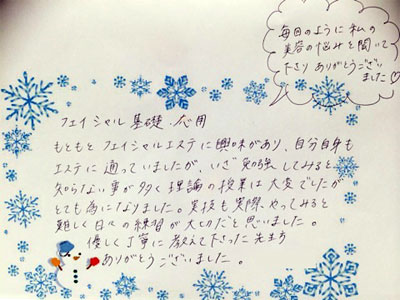 毎日のように私の
美容の悩みを聞いて
下さりありがとうござい
ました♡
フェイシャル基礎・応用
もともとフェイシャルエステに興味があり、自分自身も
エステに通っていましたが、いざ勉強してみると、
知らない事が多く理論の授業は大変でしたが
とても為になりました。実技も実際やってみると
難しく日々の練習が大切だと思いました。
優しく丁寧に教えて下さった先生方
ありがとうございました。